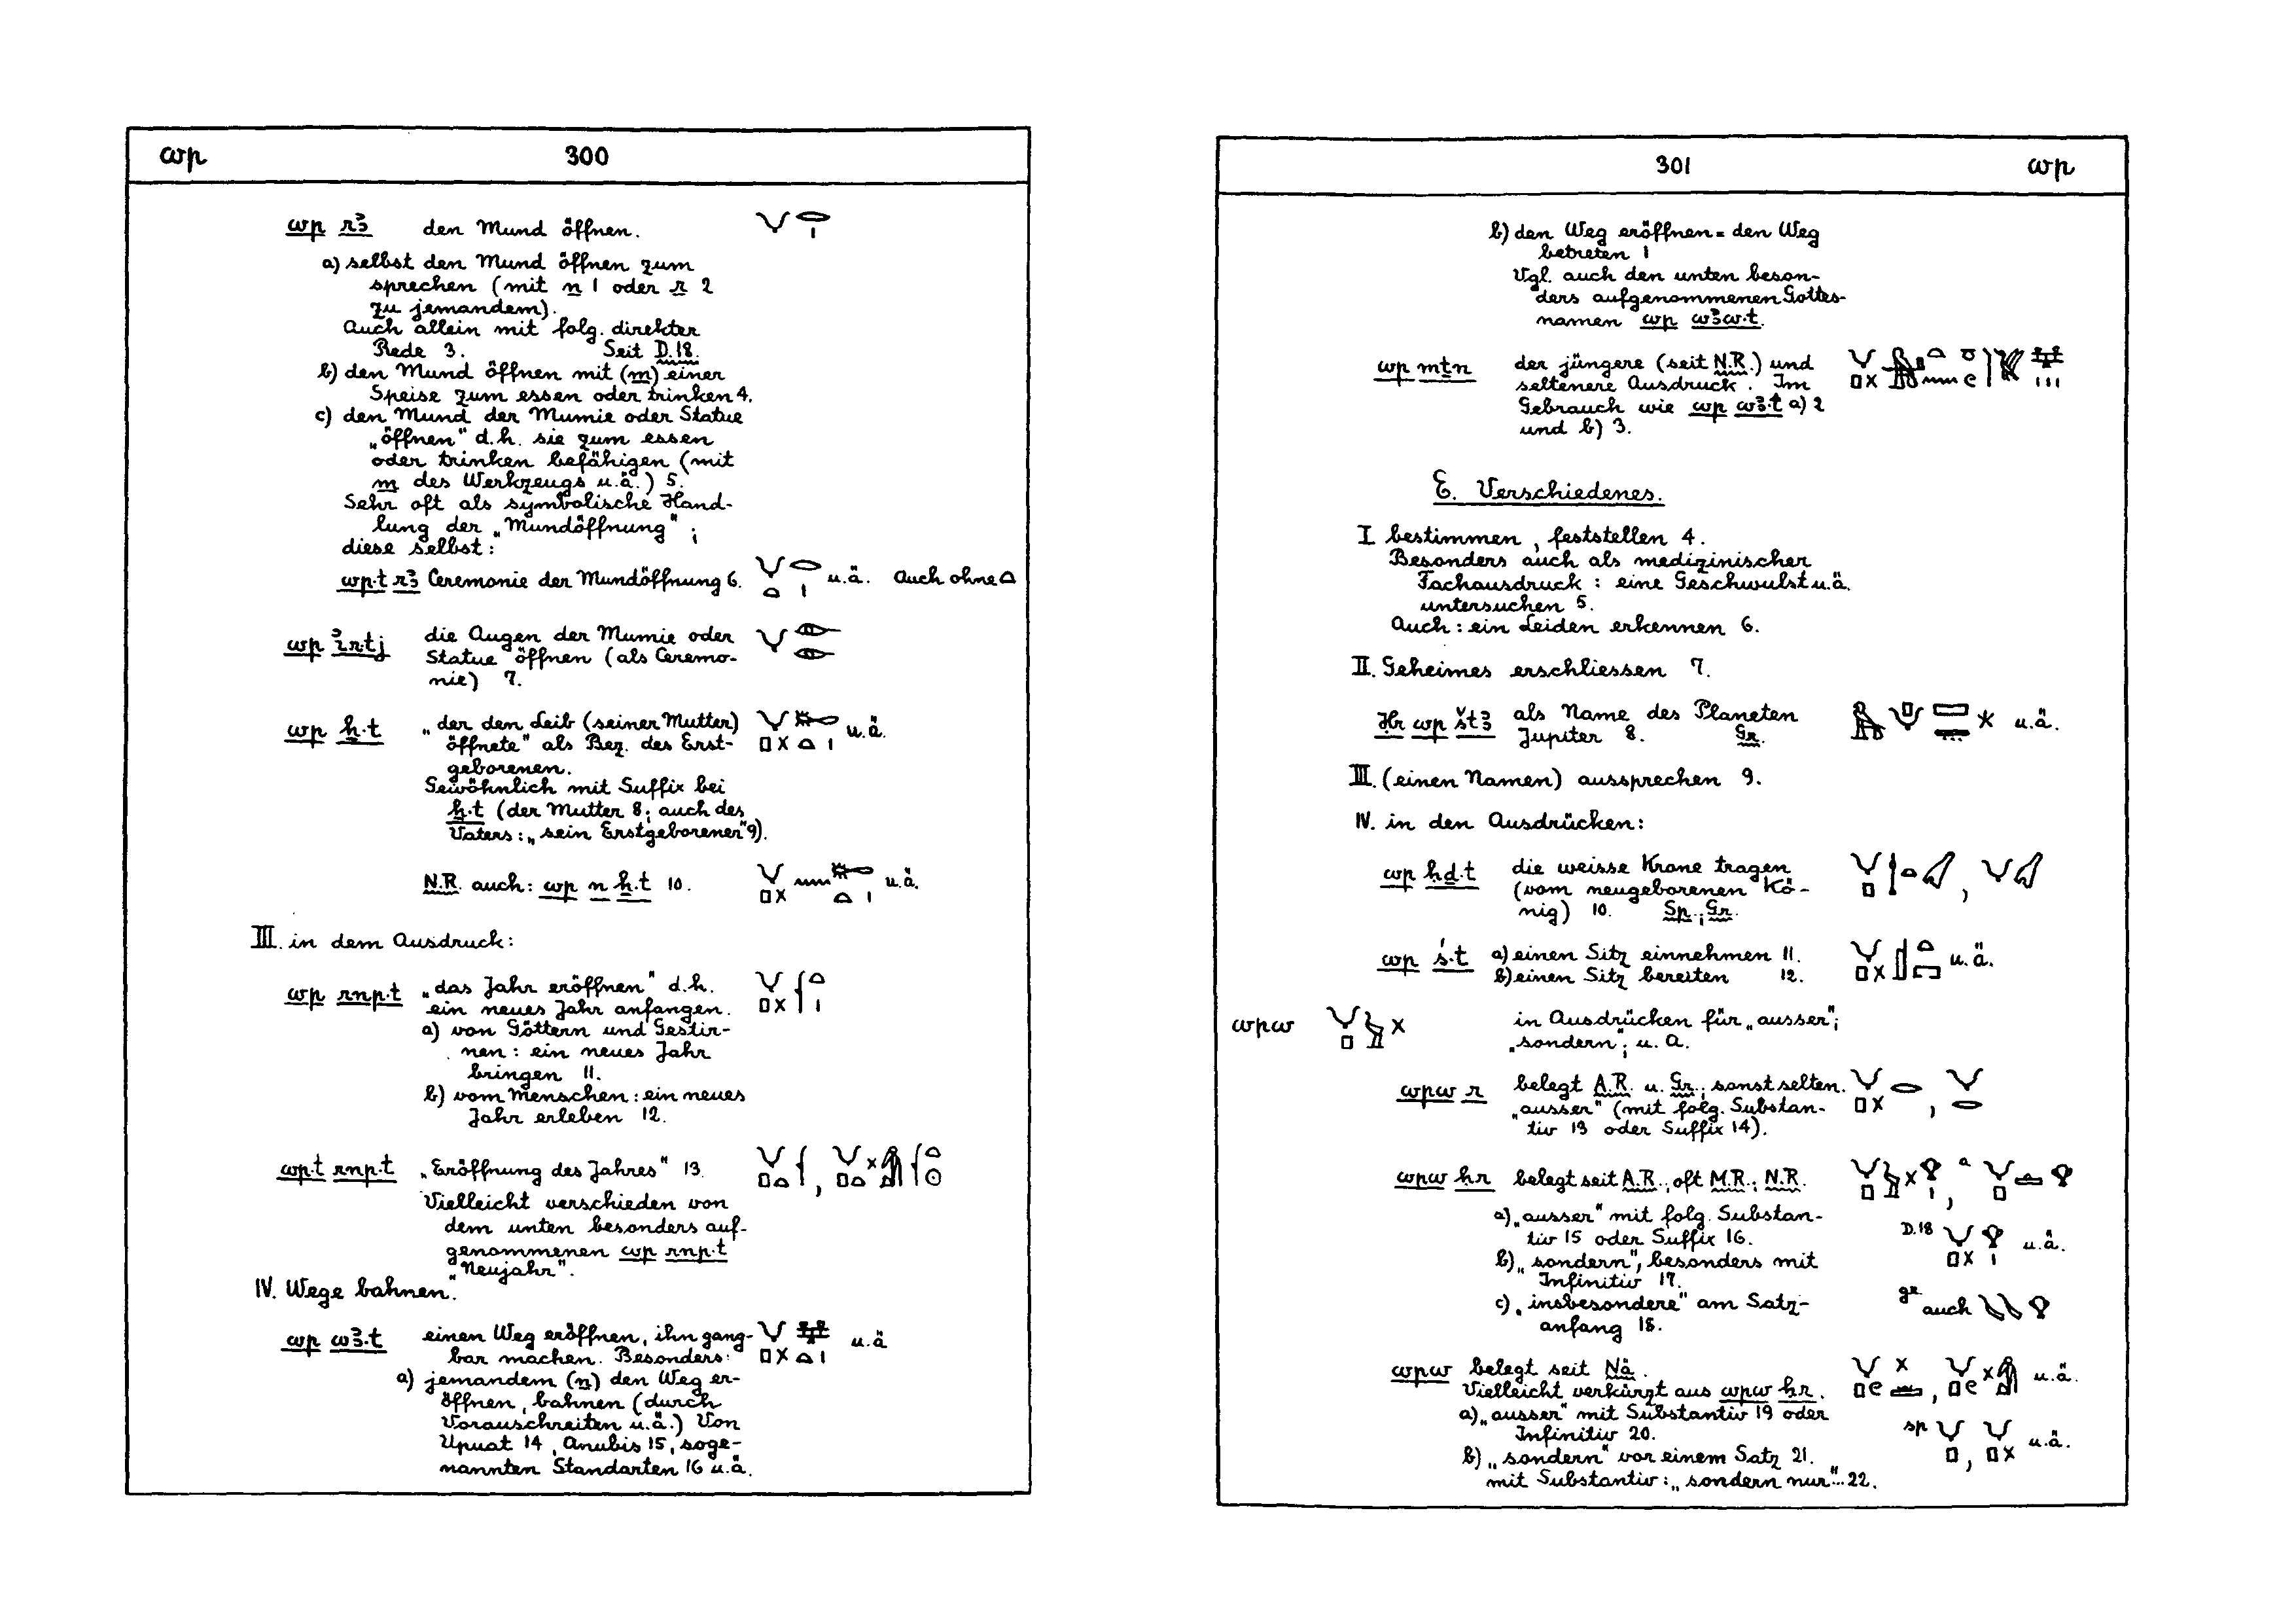 wp 300
wp rꜣ den Mund öffnen.
a) selbst den Mund öffnen zum
sprechen (mit n 1 oder r 2
zu jemandem).
Auch allein mit folg. direkter
Rede 3. Seit D.18.
b) den Mund öffnen mit (m) einer
Speise zum essen oder trinken 4.
c) den Mund der Mumie oder Statue
„öffnen“ d.h. sie zum essen
oder trinken befähigen (mit
m des Werkzeugs u.ä.) 5.
Sehr oft als symbolische Hand-
lung der „Mundöffnung“;
diese selbst:
wp.t rꜣ Ceremonie der Mundöffnung 6. u.ä. Auch ohne
wp ꞽr.tj die Augen der Mumie oder
Statue öffnen (als Ceremo-
nie) 7.
wp ẖ.t „der den Leib (seiner Mutter) u.ä.
öffnete“ als Bez. des Erst-
geborenen.
Gewöhnlich mit Suffix bei
ẖ.t (der Mutter 8; auch des
Vaters: „sein Erstgeborener“ 9).
N.R. auch: wp n ẖ.t 10. u.ä.
III. in dem Ausdruck:
wp rnp.t „das Jahr eröffnen“ d.h.
ein neues Jahr anfangen.
a) von Göttern und Gestir-
nen: ein neues Jahr
bringen 11.
b) vom Menschen: ein neues
Jahr erleben 12.
wp.t rnp.t „Eröffnung des Jahres“ 13.
Vielleicht verschieden von
dem unten besonders auf-
genommenen wp rnp.t
„Neujahr“.
IV. Wege bahnen.
wp wꜣ.t einen Weg eröffnen, ihn gang- u.ä
bar machen. Besonders:
a) jemandem (n) den Weg er-
öffnen, bahnen (durch
Vorausschreiten u.ä.) Von
Upuat 14, Anubis 15, soge-
nannten Standarten 16 u.ä.
301 wp
b) den Weg eröffnen = den Weg
betreten 1
Vgl. auch den unten beson-
ders aufgenommenen Gottes-
namen wp wꜣw.t.
wp mṯn der jüngere (seit N.R.) und
seltenere Ausdruck. Im
Gebrauch wie wp wꜣ.t a) 2
und b) 3.
E. Verschiedenes.
I bestimmen, feststellen 4.
Besonders auch als medizinischer
Fachausdruck: eine Geschwulst u.ä.
untersuchen 5.
Auch: ein Leiden erkennen 6.
II. Geheimes erschliessen 7.
Ḥr wp štꜣ als Name des Planeten u.ä.
Jupiter 8. Gr.
III. (einen Namen) aussprechen 9.
IV. in den Ausdrücken:
wp ḥḏ.t die weisse Krone tragen
(vom neugeborenen Kö-
nig) 10. Sp.; Gr.
wp ś.t a) einen Sitz einnehmen 11. u.ä.
b) einen Sitz bereiten 12.
wpw in Ausdrücken für „ausser“;
„sondern“; u. a.
wpw r belegt A.R. u. Gr.; sonst selten.
„ausser“ (mit folg. Substan-
tiv 13 oder Suffix 14).
wpw ḥr belegt seit A.R.; oft M.R.; N.R. a
a) „ausser“ mit folg. Substan-
tiv 15 oder Suffix 16. D.18 u.ä.
b) „sondern“, besonders mit
Infinitiv 17.
c) „insbesondere“ am Satz- ge auch
anfang 18.
wpw belegt seit Nä. u.ä.
Vielleicht verkürzt aus wpw ḥr.
a) „ausser“ mit Substantiv 19 oder
Infinitiv 20. sp u.ä.
b) „sondern“ vor einem Satz 21.
mit Substantiv: „sondern nur“... 22.